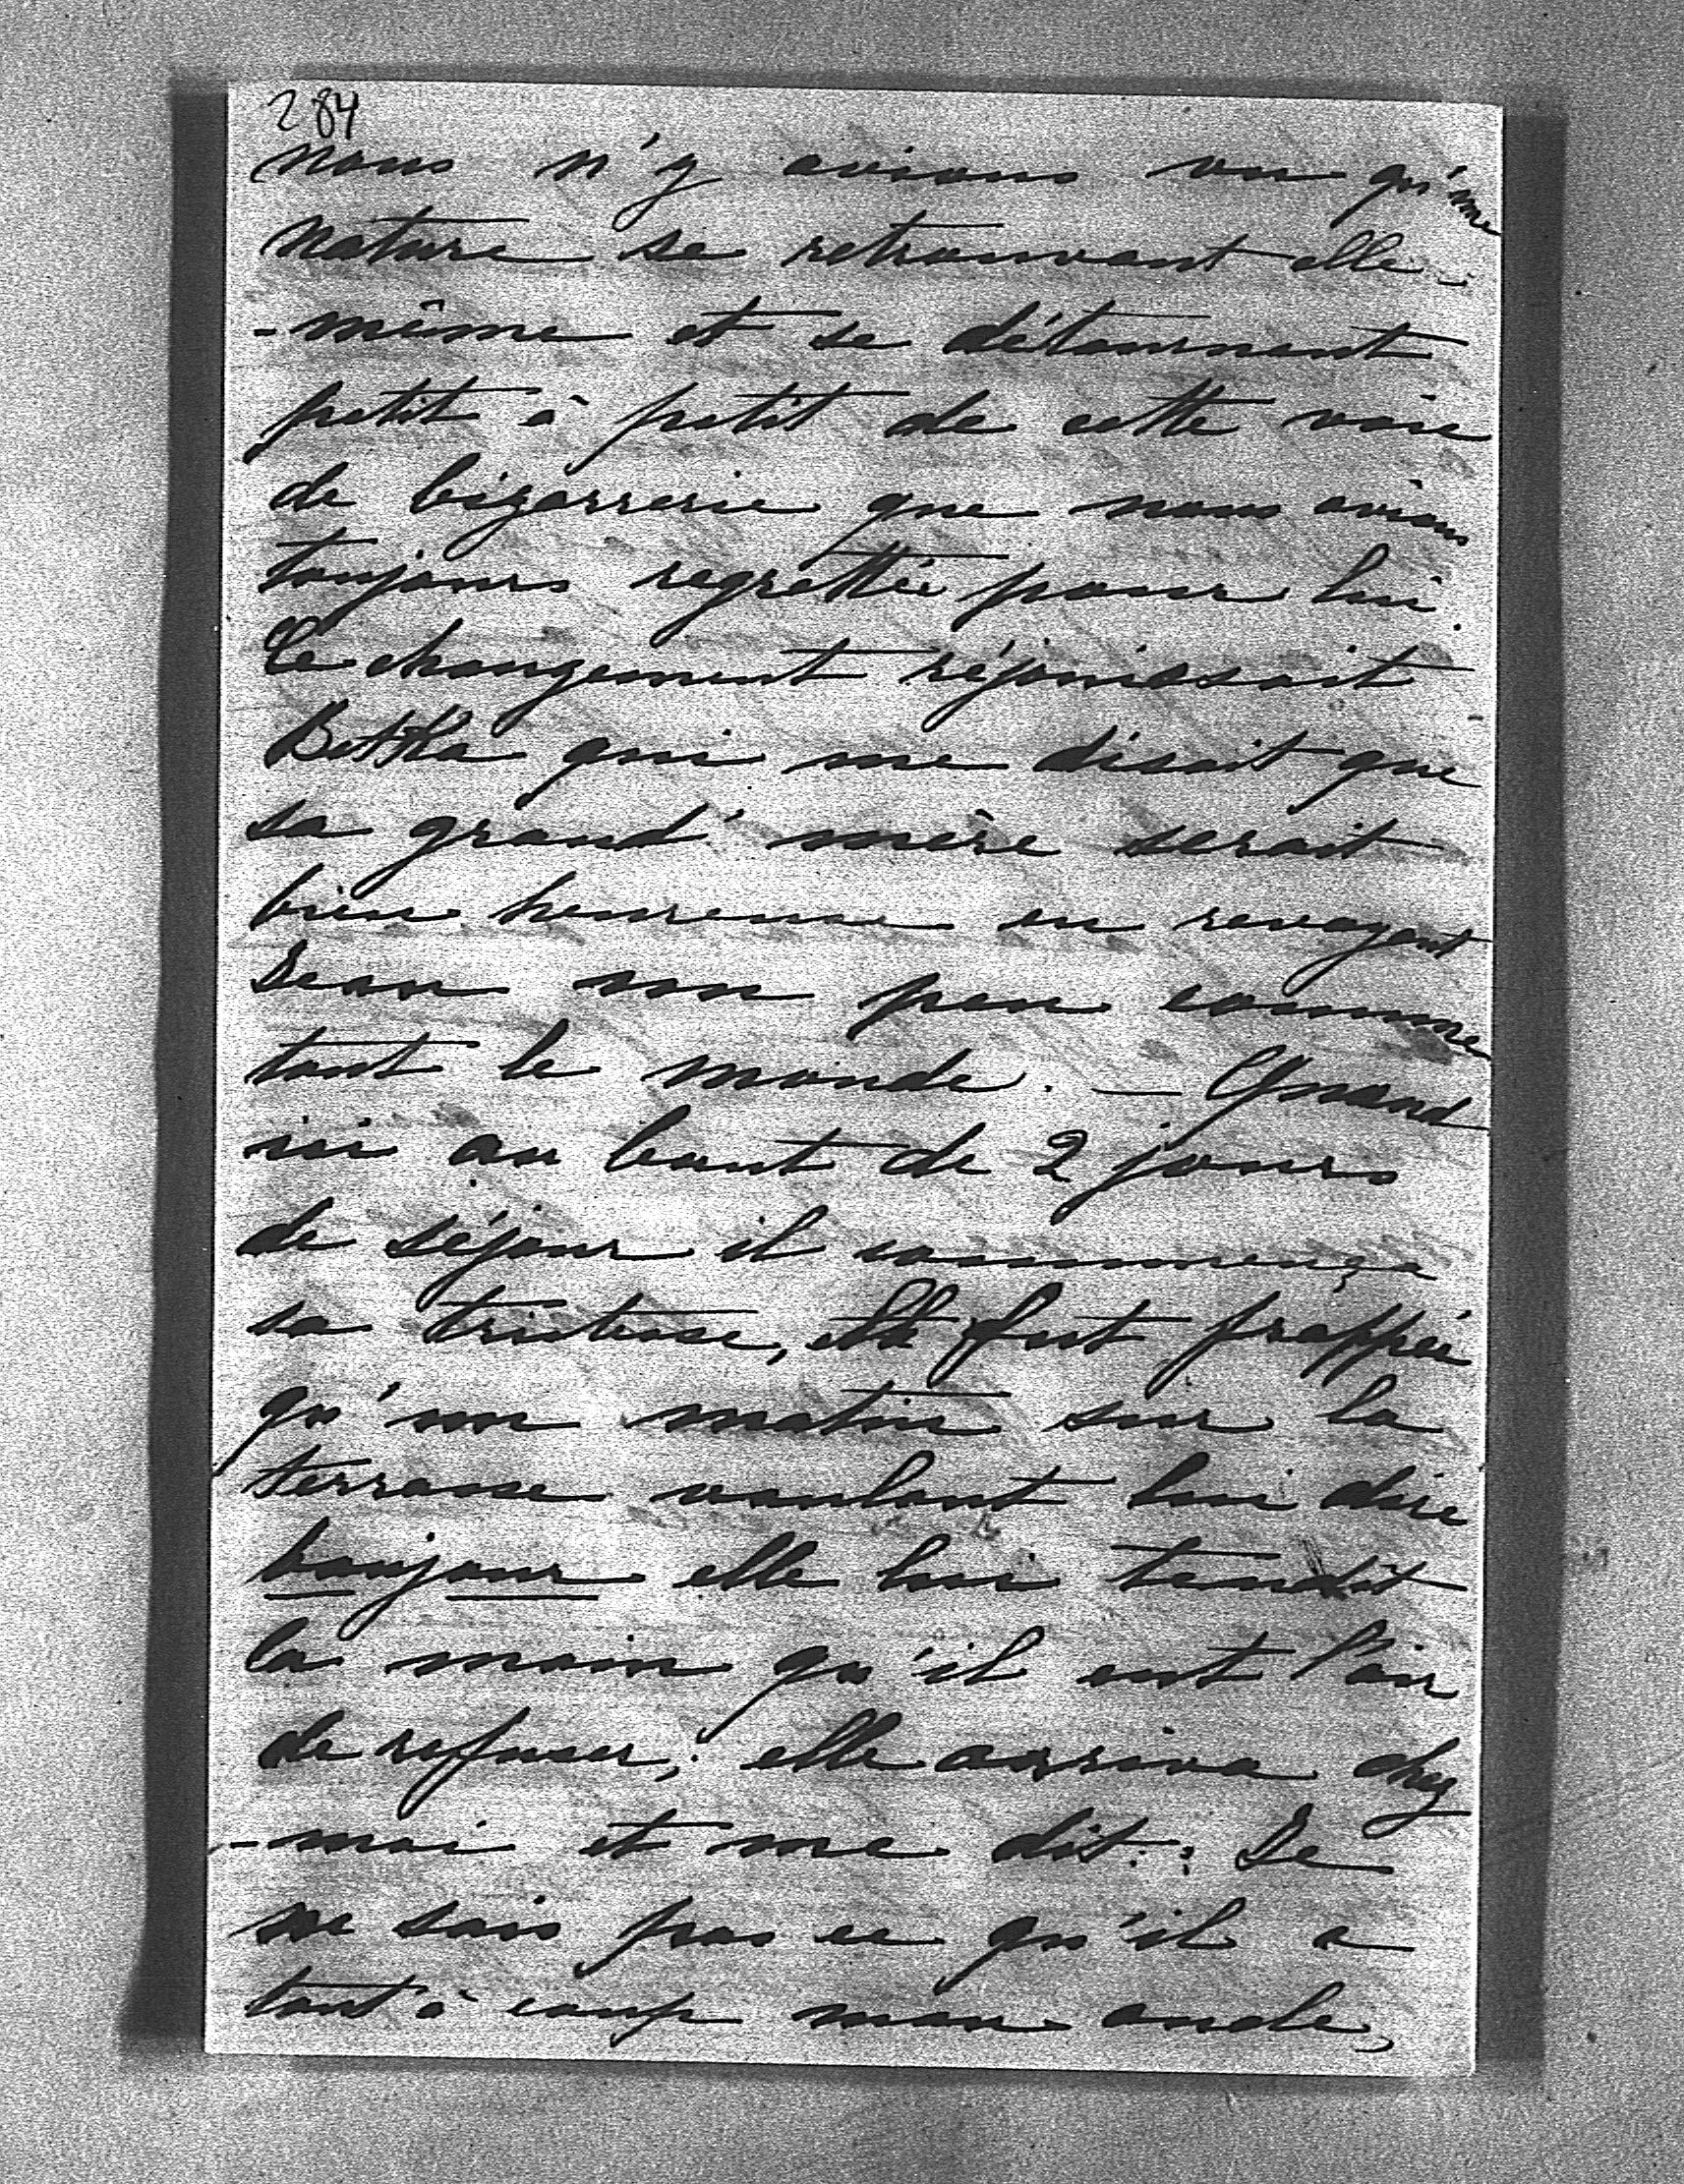 284
nous n'y avions vu qu'une
nature se retrouvant elle-
-même et se détournant
petit à petit de cette voie
de bizarrerie que nous avions
toujours regrettée pour lui.
Ce changement réjouissait
Bettha qui me disait que
sa grand'mère serait
bien heureuse en revoyant
Jean un peu comme
tout le monde. — Quand
ici au bout de 2 jours
de séjour il commença
sa tristesse, elle fut frappée
qu'un matin sur la
terrasse voulant lui dire
bonjour elle lui tendit
la main qu'il eut l'air
de refuser; elle arriva chez
-moi et me dit: Je
ne sais pas ce qu'il a
tout à coup mon oncle,